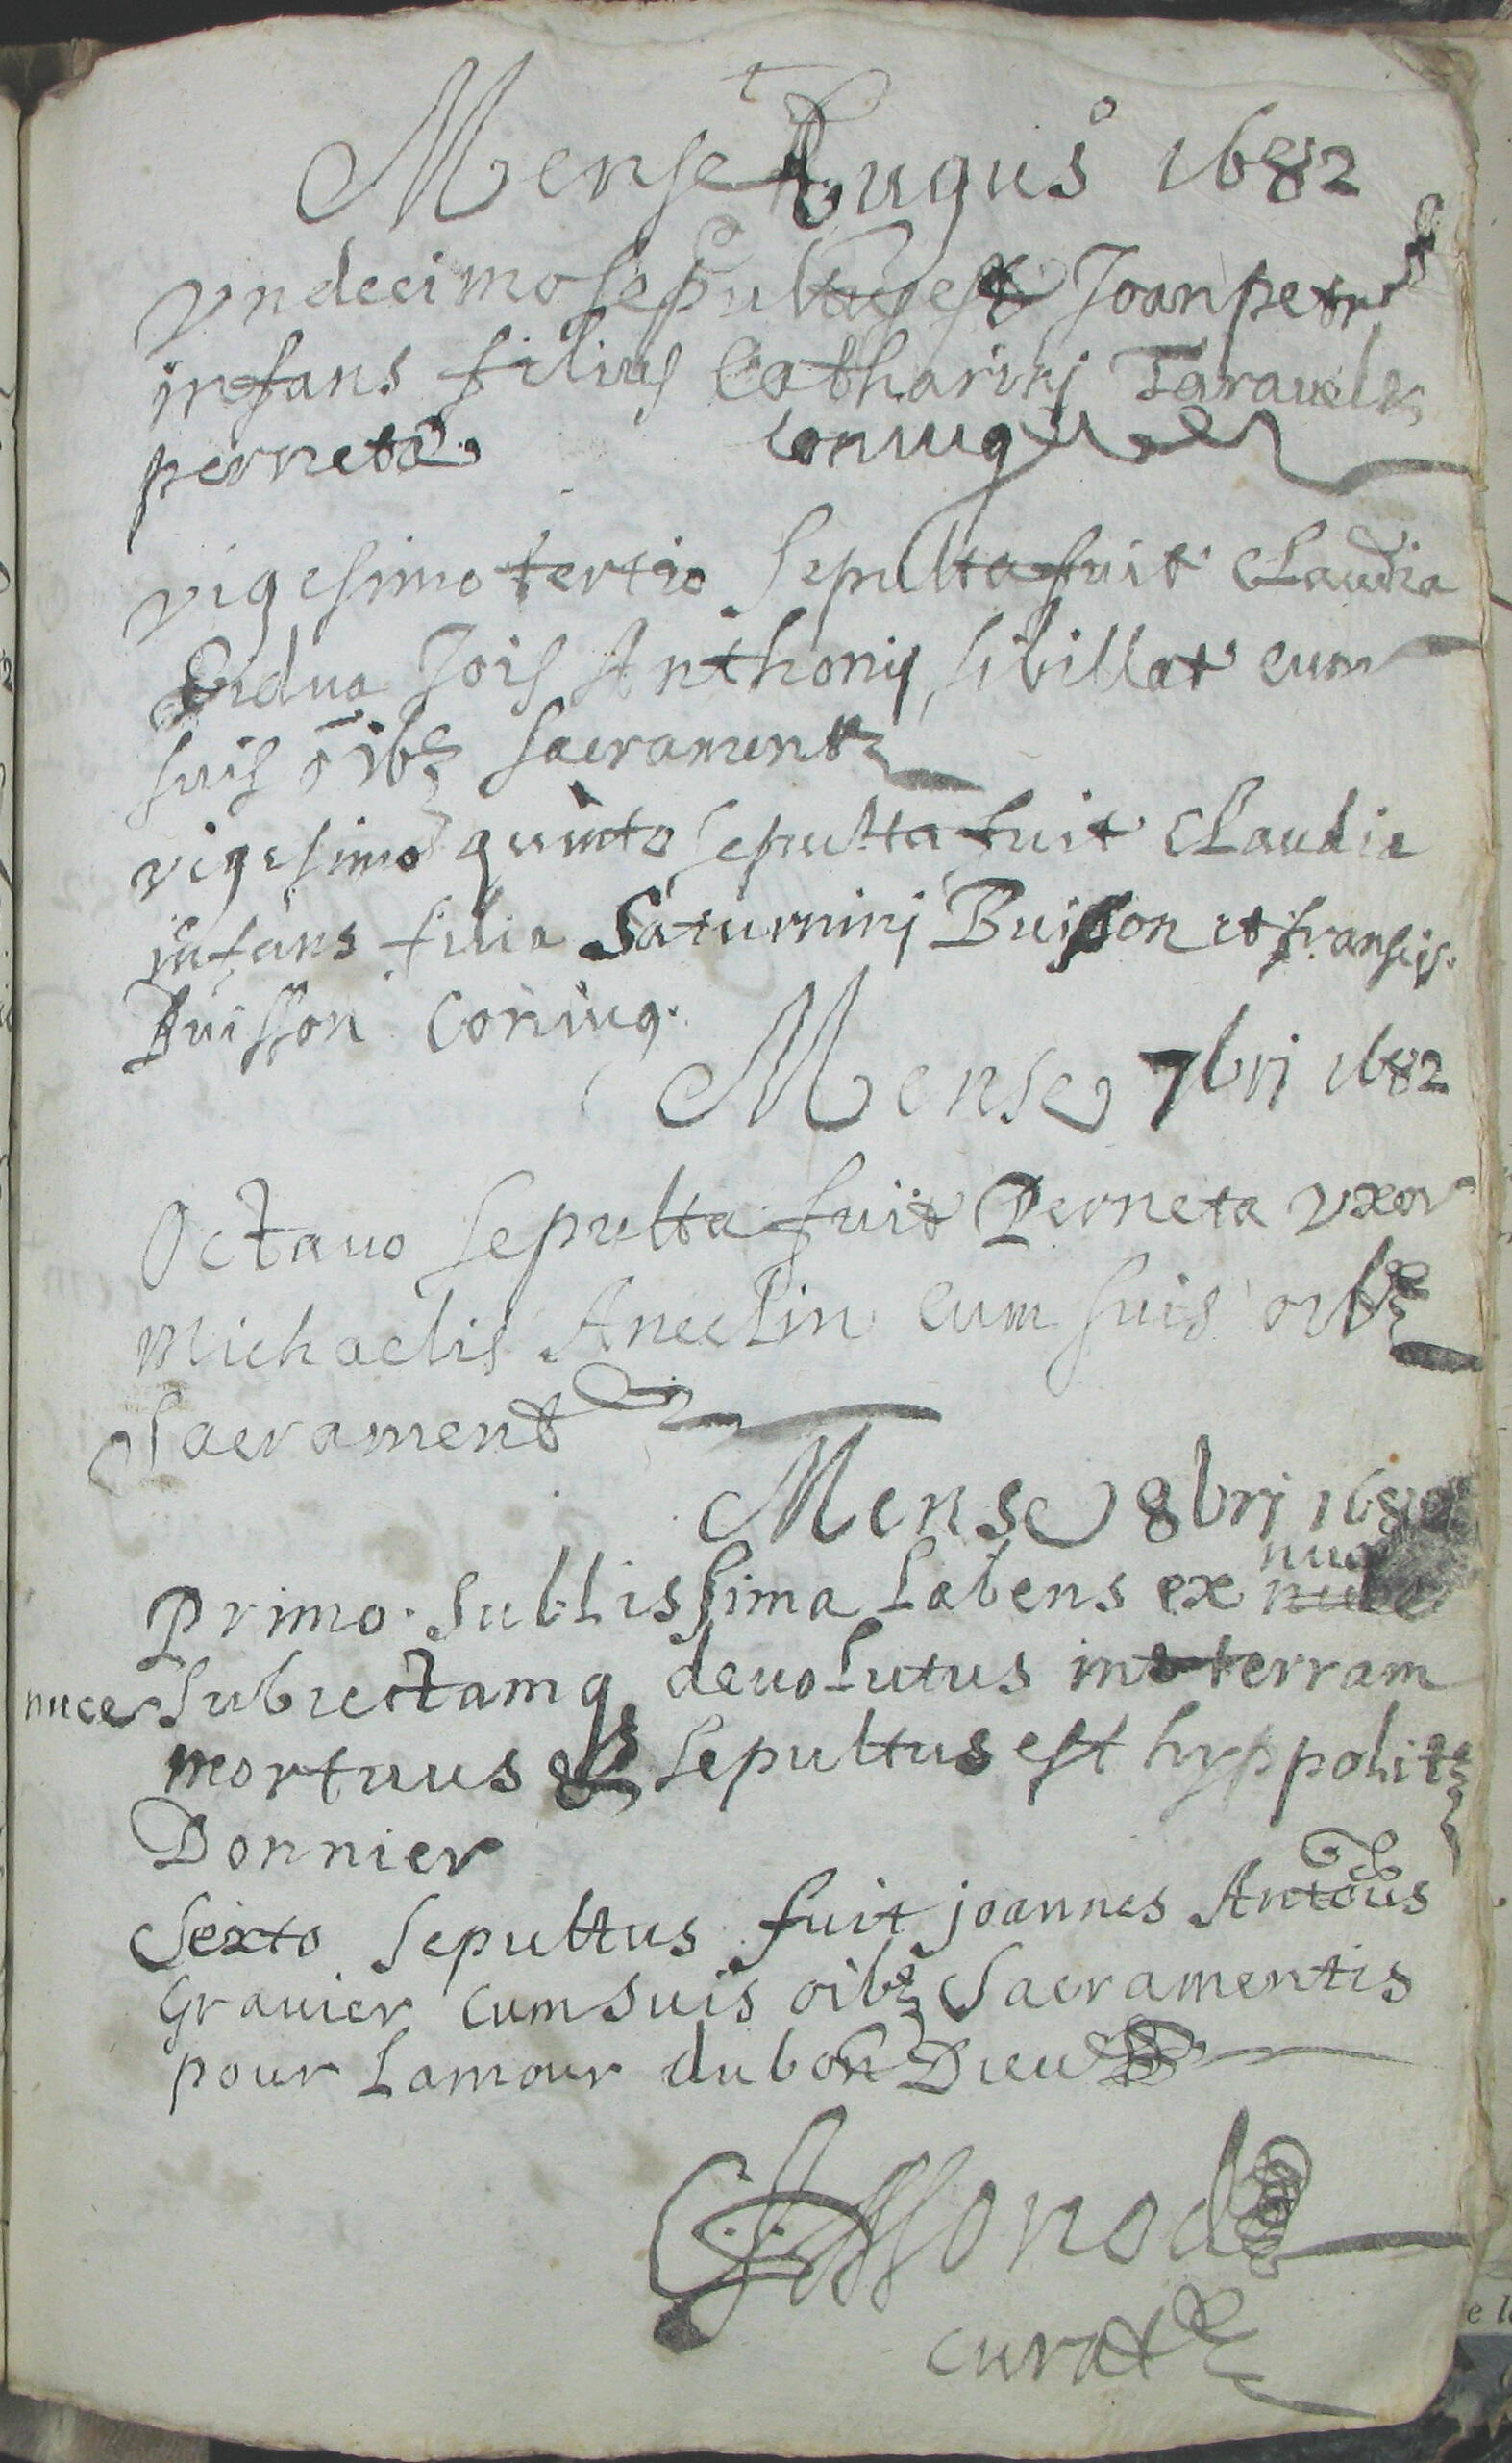 Mense Augusto 1682
Undecimo sepultus est Joanpetrus
infans filius Catharini Taravel et
perneta coniug
vigesimo tertio sepulta fuit Claudia
Vidua Jois Anthonij sibillat cum
suis oibz sacramentz
vigesimo quinto sepulta fuit Claudia
infans filia Saturninj Buisson et fransis.
Buisson coniug.
Mense 7brj 1682
Octavo sepulta fuit Perneta uxor
Michaelis Aneclin cum suis oibz
Sacrament
Mense 8brj 168
nuce
Primo. sublissima labens ex
nuce subiectamq devolutus in terram
mortuus sepultus est hyppolitz
Donnier
Sexto sepultus fuit joannes Antoius
Gravier cum suis oibz Sacramentis
pour Lamour du bon Dieu
curat